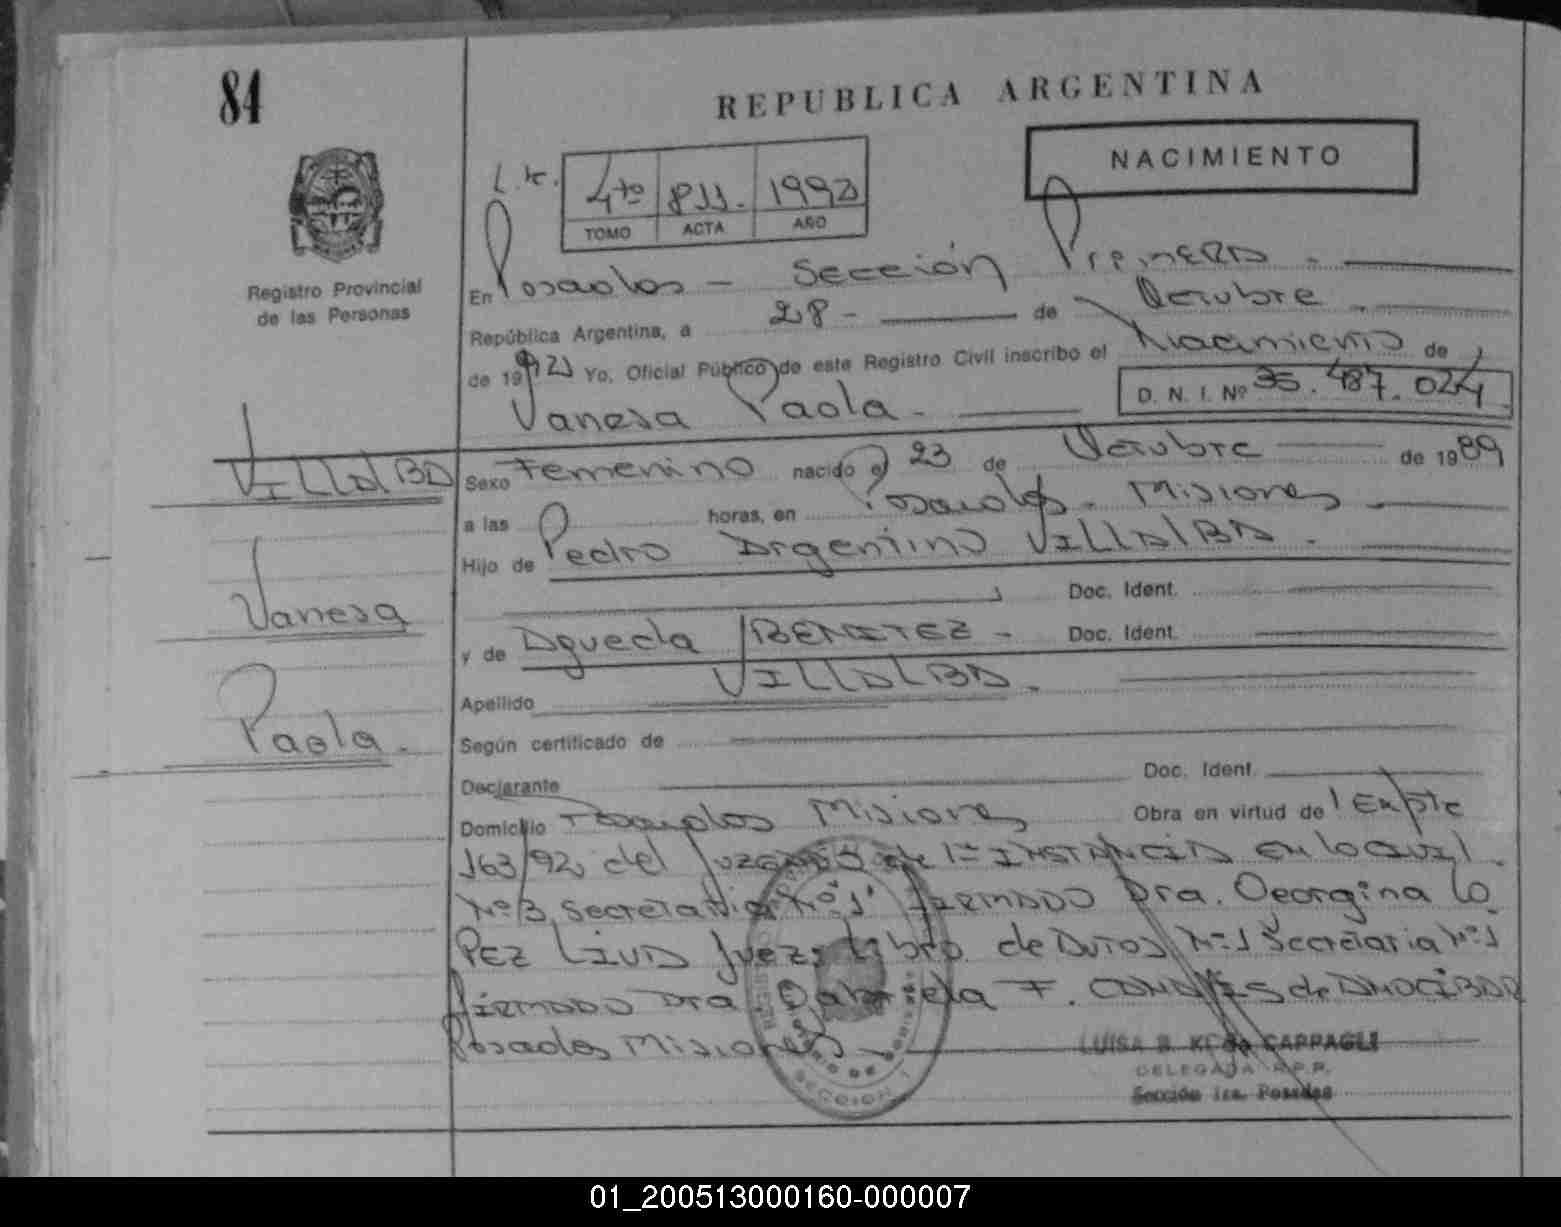 84
REPUBLICA ARGENTINA
NACIMIENTO
4to 811. 1992
TOMO ACTA AÑO
Registro Provincial
de las Personas
En Posadas - Sección Primera.
República Argentina, a 28 - de Octubre
de 1992 Yo, Oficial Público de este Registro Civil inscribo el Nacimiento de
Vanesa Paola. D. N. I. Nº 35.487.024
VILLALBA
Sexo Femenino nacido el 23 de Octubre de 1989
a las horas, en Posadas. Misiones
Hijo de Pedro Argentino VILLALBA.
Doc. Ident.
Vanesa
y de Agueda BENITEZ - Doc. Ident.
Apellido VILLALBA.
Paola.
Según certificado de
Declarante Doc. Ident.
Domicilio Posadas Misiones Obra en virtud de Expte
163/92 del Juzgado de 1ª INSTANCIA en lo Civil.
Nº 3, Secretaria Nº 1 FIRMADO Dra. Georgina Lo
PEZ LIVA Juez; Libro de AUTOS Nº 1 Secretaria Nº 1
FIRMADO Dra Gabriela F. de
Posadas Misiones
LUISA B. CAPPAGLI
DELEGADA R.P.P.
Sección 1ra. Posadas
SECCION 1
01_200513000160-000007